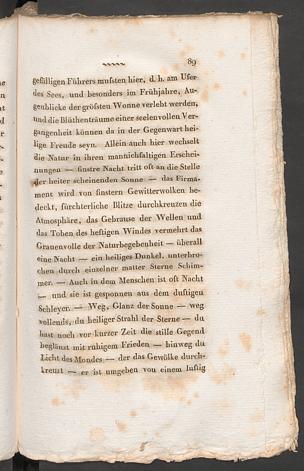 89
gefälligen Führers mufsten hier, d. h. am Ufer
des Sees, und besonders im Frühjahre, Au-
genblicke der gröfsten Wonne verlebt werden,
und die Blüthenträume einer seelenvollen Ver-
gangenheit können da in der Gegenwart hei-
lige Freude seyn. Allein auch hier wechselt
die Natur in ihren mannichfaltigen Erschei-
nungen — finstre Nacht tritt oft an die Stelle
der heiter scheinenden Sonne — das Firma-
ment wird von finstern Gewitterwolken be-
deckt, fürchterliche Blitze durchkreuzen die
Atmosphäre, das Gebrause der Wellen und
das Toben des heftigen Windes vermehrt das
Grauenvolle der Naturbegebenheit — überall
eine Nacht — ein heiliges Dunkel, unterbro-
chen durch einzelner matter Sterne Schim-
mer. — Auch in dem Menschen ist oft Nacht
— und sie ist gesponnen aus dem duftigen
Schleyer. — Weg, Glanz der Sonne — weg
vollends, du heiliger Strahl der Sterne — du
hast noch vor kurzer Zeit die stille Gegend
beglänst mit ruhigem Frieden — hinweg du
Licht des Mondes — der das Gewölke durch-
kreust — er ist umgeben von einem luftig